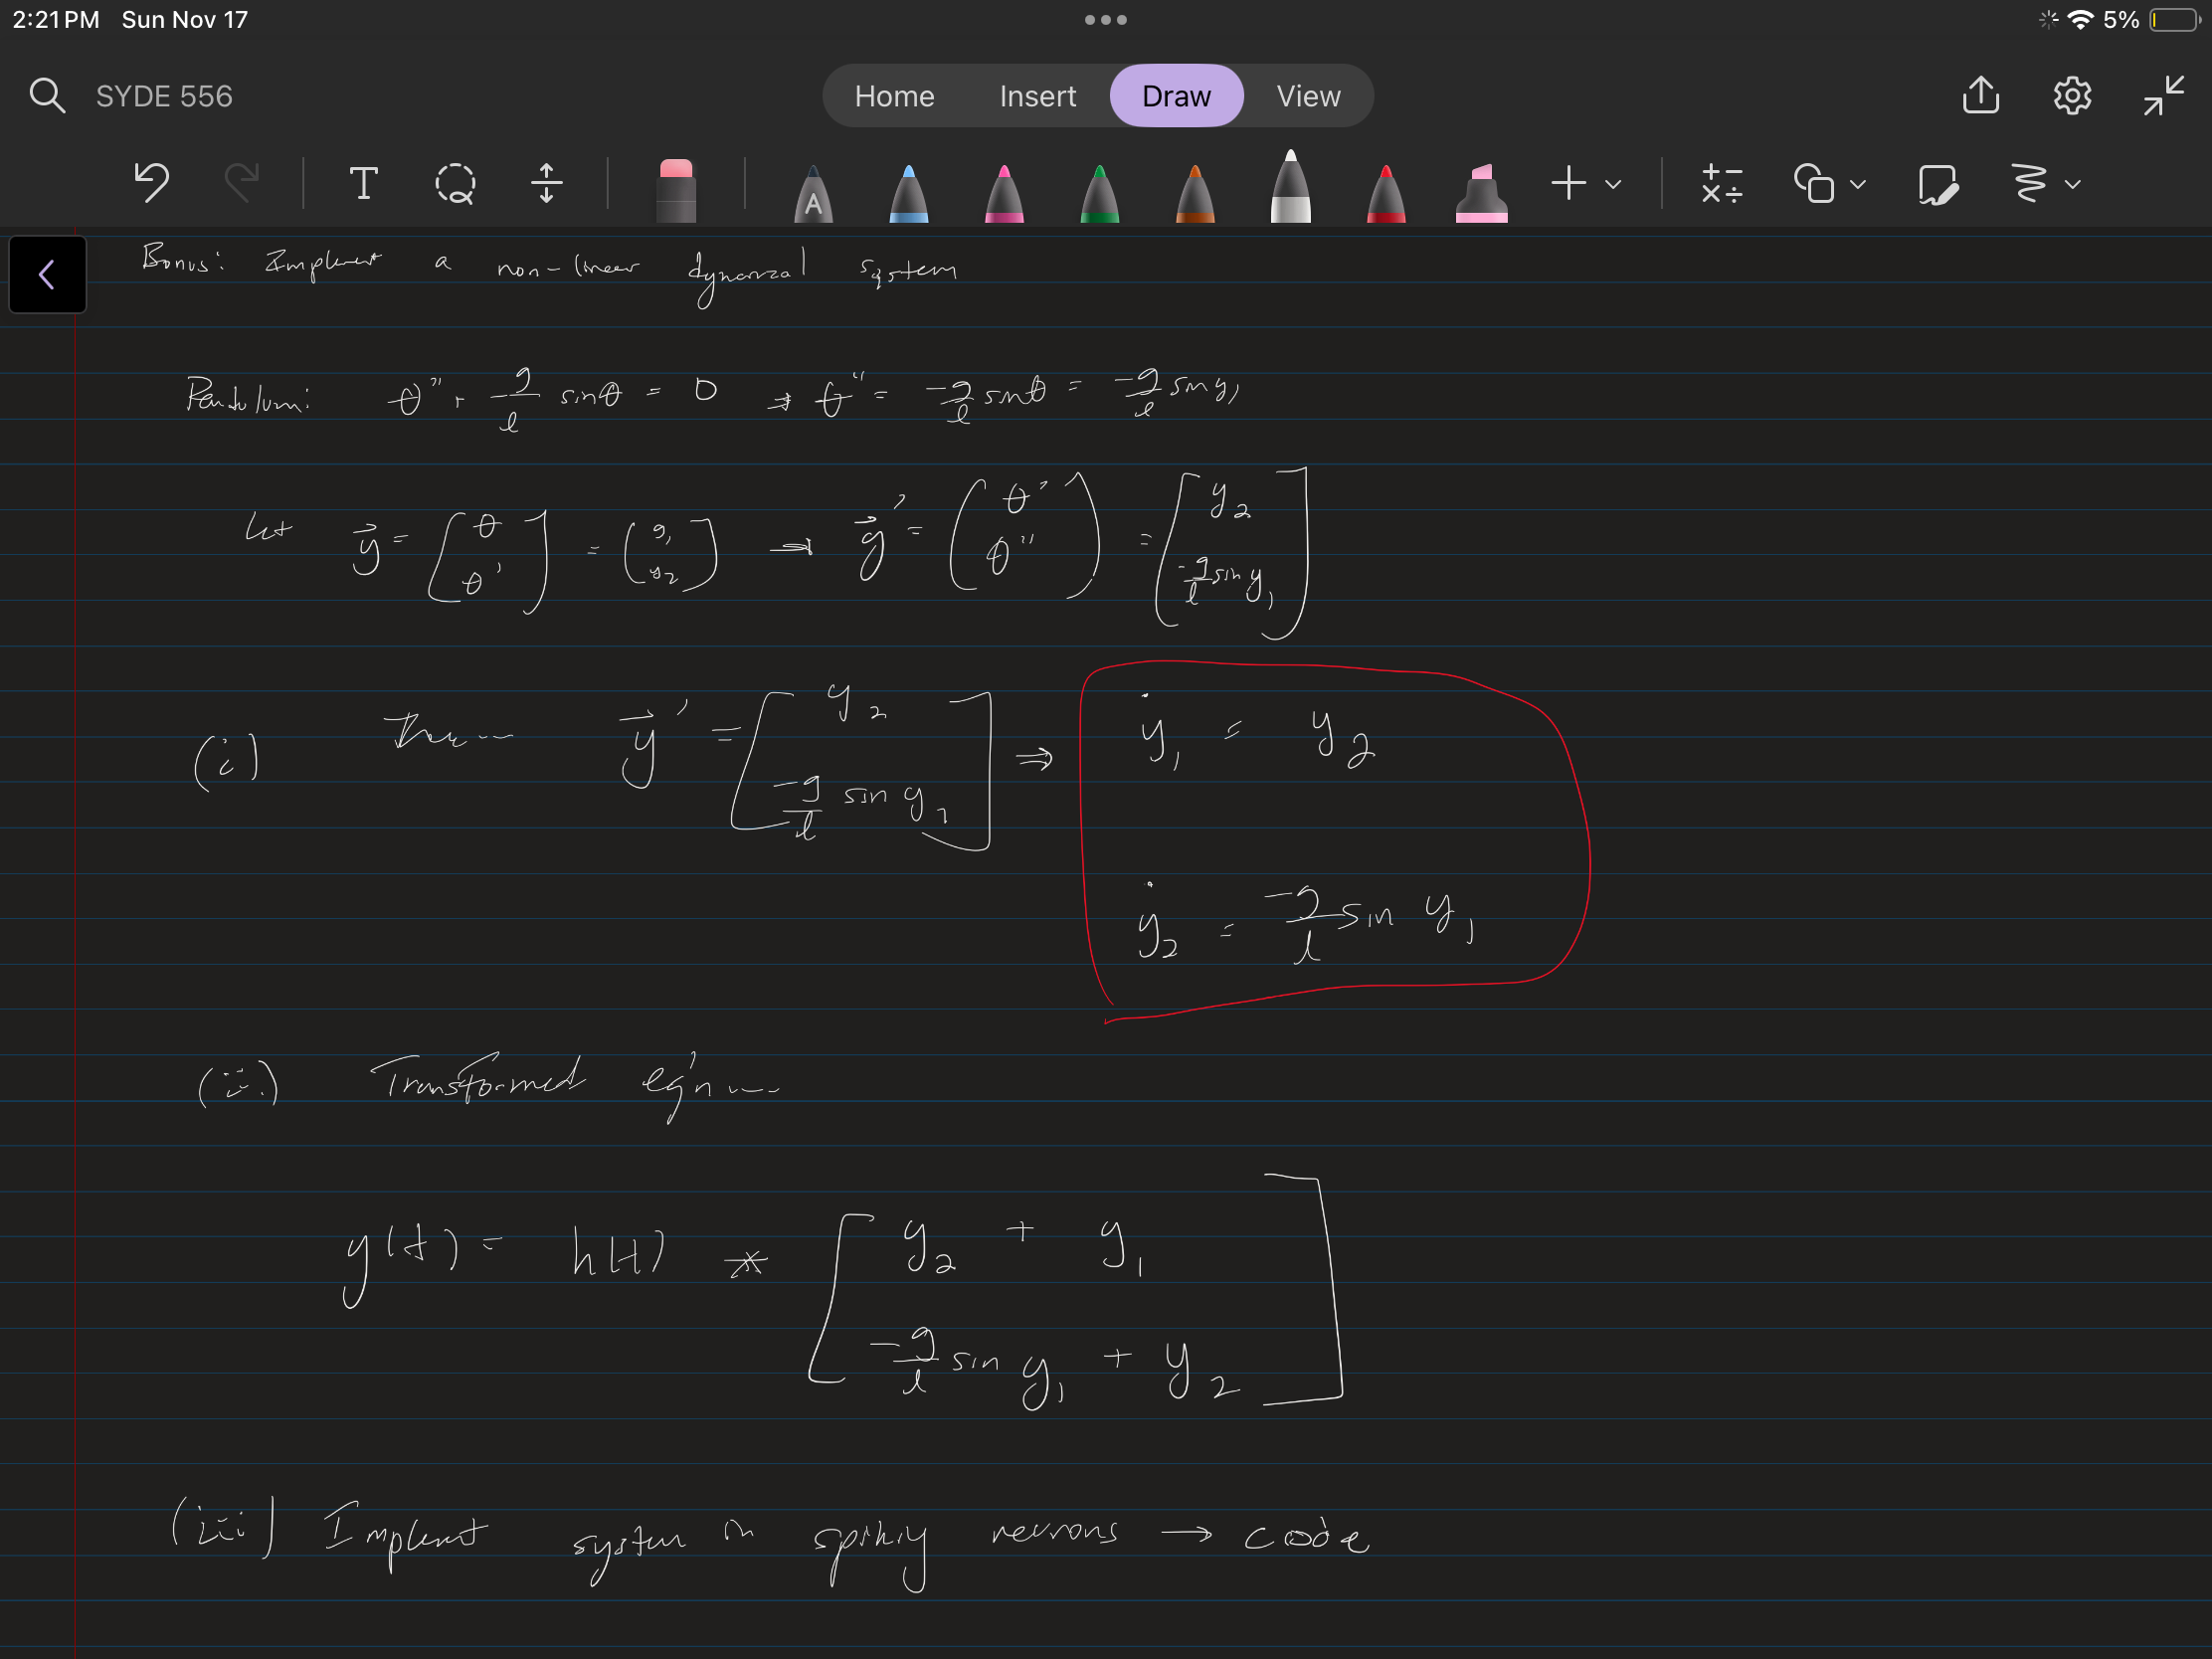 2:21 PM Sun Nov 17
5%
SYDE 556
Home Insert Draw View
T
A
Bonus: Implement a non-linear dynamical system
Pendulum: θ'' + g/l sinθ = 0 → θ'' = -g/l sinθ = -g/l sin y₁
let y⃗ = [θ θ'] = [y₁ y₂] → y⃗' = [θ' θ''] = [y₂ -g/l sin y₁]
(i) Then... y⃗' = [y₂ -g/l sin y₁] ⇒ ẏ₁ = y₂
ẏ₂ = -g/l sin y₁
(ii) Transformed eq'n...
y(t) = h(t) * [y₂ + y₁ -g/l sin y₁ + y₂]
(iii) Implement system in spiking neurons → code